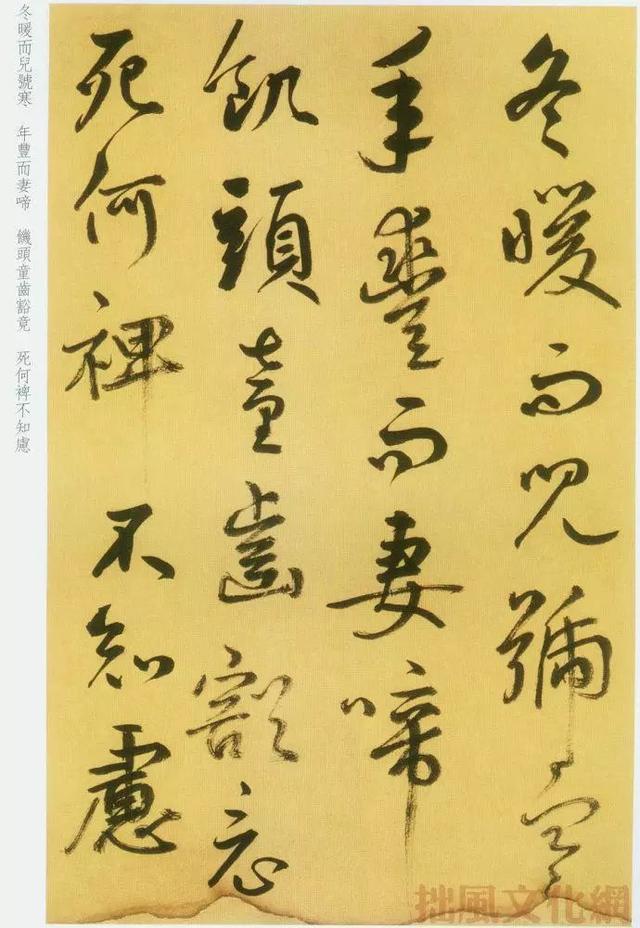 冬暖而兒號寒
年豐而妻啼
飢頭童齒豁竟
死何裨不知慮
冬暖而兒號寒　年豐而妻啼　饑頭童齒豁竟　死何裨不知慮
拙風文化網